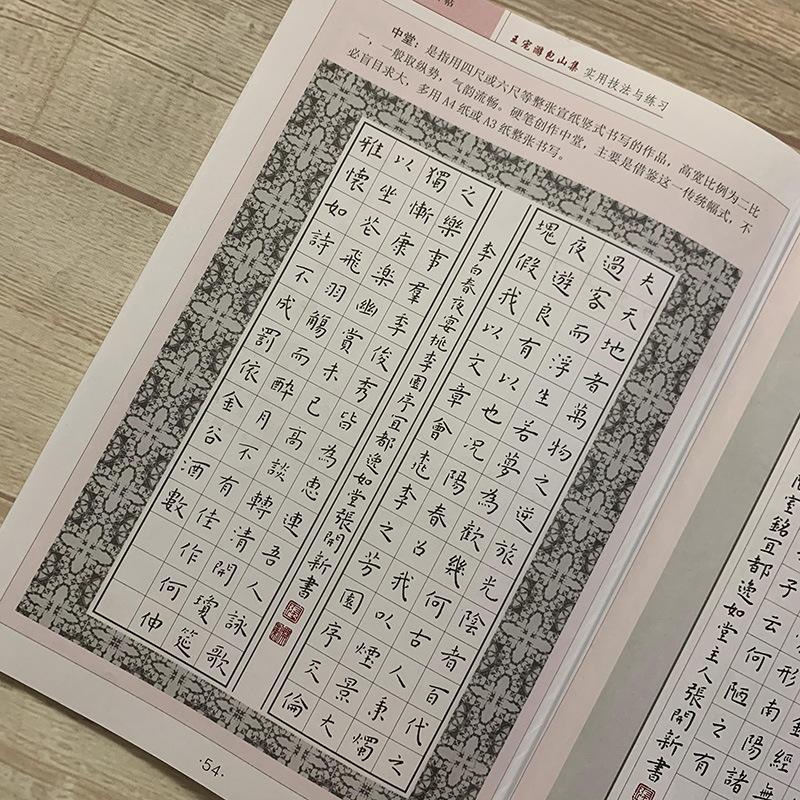 帖
王宠游包山集 实用技法与练习
中堂：是指用四尺或六尺等整张宣纸竖式书写的作品，高宽比例为二比
一，一般取纵势，气韵流畅。硬笔创作中堂，主要是借鉴这一传统幅式，不
必盲目求大，多用A4纸或A3纸整张书写。
夫天地者萬物之逆旅光陰者百代之
過客而浮生若夢為歡幾何古人秉燭
夜遊良有以也况陽春召我以煙景大
塊假我以文章會桃李之芳園序天倫
李白春夜宴桃李園序宜都逸如堂張開新書
之樂事羣季俊秀皆為惠連吾人詠歌
獨慚康楽幽賞未已高談轉清開瓊筵
以坐花飛羽觴而醉月不有佳作何伸
雅懷如詩不成罰依金谷酒數
·54·
經無
形南陽諸
子云何陋之有
室銘宜都逸如堂主人張開新書